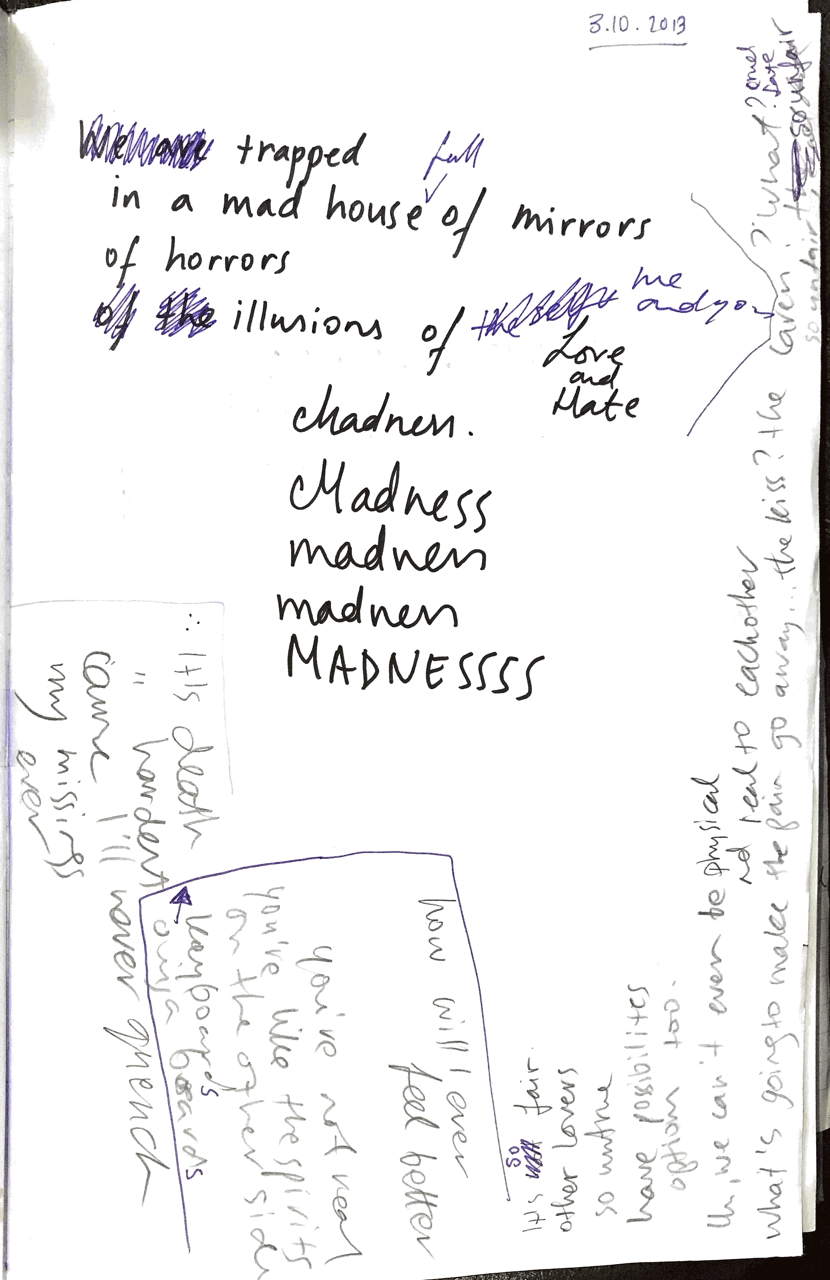 3.10.2013
trapped
full
in a mad house of mirrors
of horrors
illusions of
me
and you
Love
and
Hate
Madness.
Madness
madness
madness
MADNESSSS
∴ It's death
" hardest
cause I'll never quench
my missings
ever
how will I ever
feel better
you're not real
you're like the spirits
on the other side
keyboards
ouija boards
It's so fair.
other lovers
so untrue
have possibilites
options too.
we can't even be physical
real to eachother
what's going to make the pain go away... the kiss? the caress? What?
cruel
fate
so unfair
so unfair